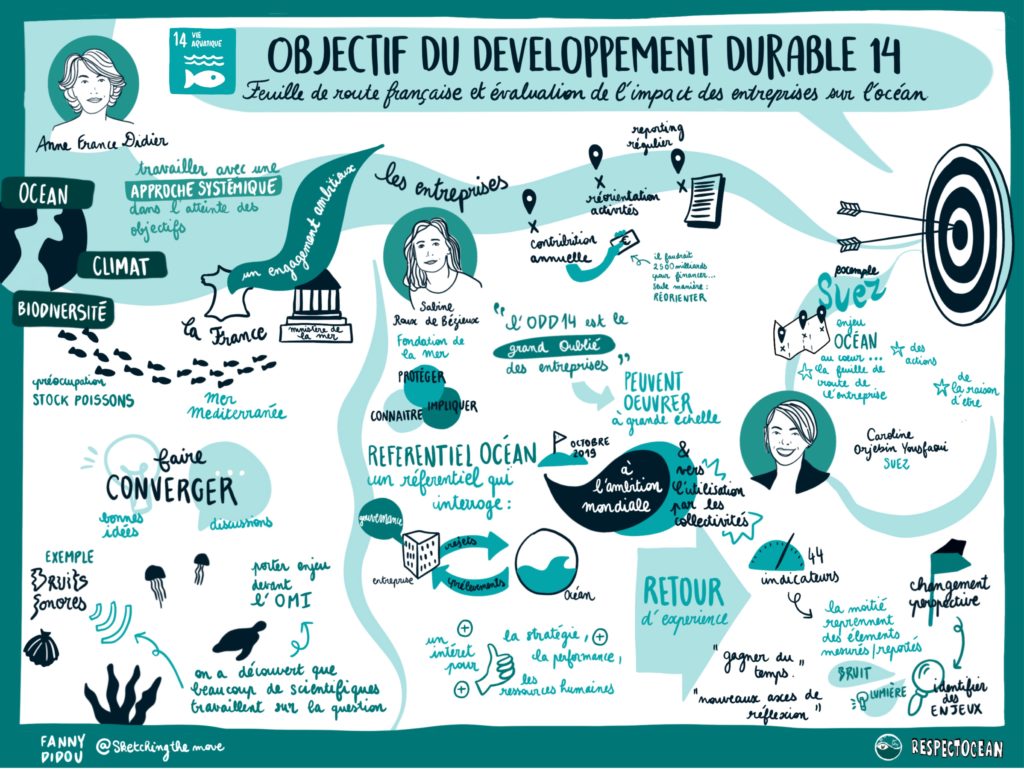 14 VIE
AQUATIQUE
OBJECTIF DU DEVELOPPEMENT DURABLE 14
Feuille de route française et évaluation de l'impact des entreprises sur l'océan
Anne France Didier
OCEAN
CLIMAT
BIODIVERSITÉ
travailler avec une
APPROCHE SYSTÉMIQUE
dans l'atteinte des
objectifs
un engagement ambitieux
la France
ministère de
la mer
préocupation
STOCK POISSONS
Mer
Mediterranée
faire
CONVERGER
bonnes
idées
discussions
EXEMPLE
Bruits
Sonores
porter enjeu
devant
l'OMI
on a découvert que
beaucoup de scientifiques
travaillent sur la question
les entreprises
Sabine
Roux de Bézieux
Fondation de
la mer
PROTÉGER
CONNAITRE
IMPLIQUER
contribution
annuelle
réorientation
activités
reporting
régulier
€
il faudrait
2500 milliards
pour financer...
seule manière :
RÉORIENTER
"l'ODD14 est le
grand Oublié
des entreprises"
PEUVENT
OEUVRER
à grande échelle
REFERENTIEL OCÉAN
un réferentiel qui
interroge :
OCTOBRE
2019
à
l'ambition
mondiale
& vers
l'utilisation
par les
collectivités
gouvernance
entreprise
rejets
prélèvements
Océan
un
intéret
pour
la stratégie,
la performance,
les
ressources humaines
RETOUR
d'experience
exemple
Suez
enjeu
OCÉAN
au coeur...
la feuille de
route de
l'entreprise
des
actions
de
la raison
d'être
Caroline
Orjebin Yousfaoui
SUEZ
44
indicateurs
la moitié
reprennent
des élements
mesurés/reportés
BRUIT
LUMIÈRE
"gagner du
temps."
"nouveaux axes de
réflexion"
changement
perspective
identifier
des
ENJEUX
FANNY
DIDOU
@Sketchingthemove
RESPECTOCEAN